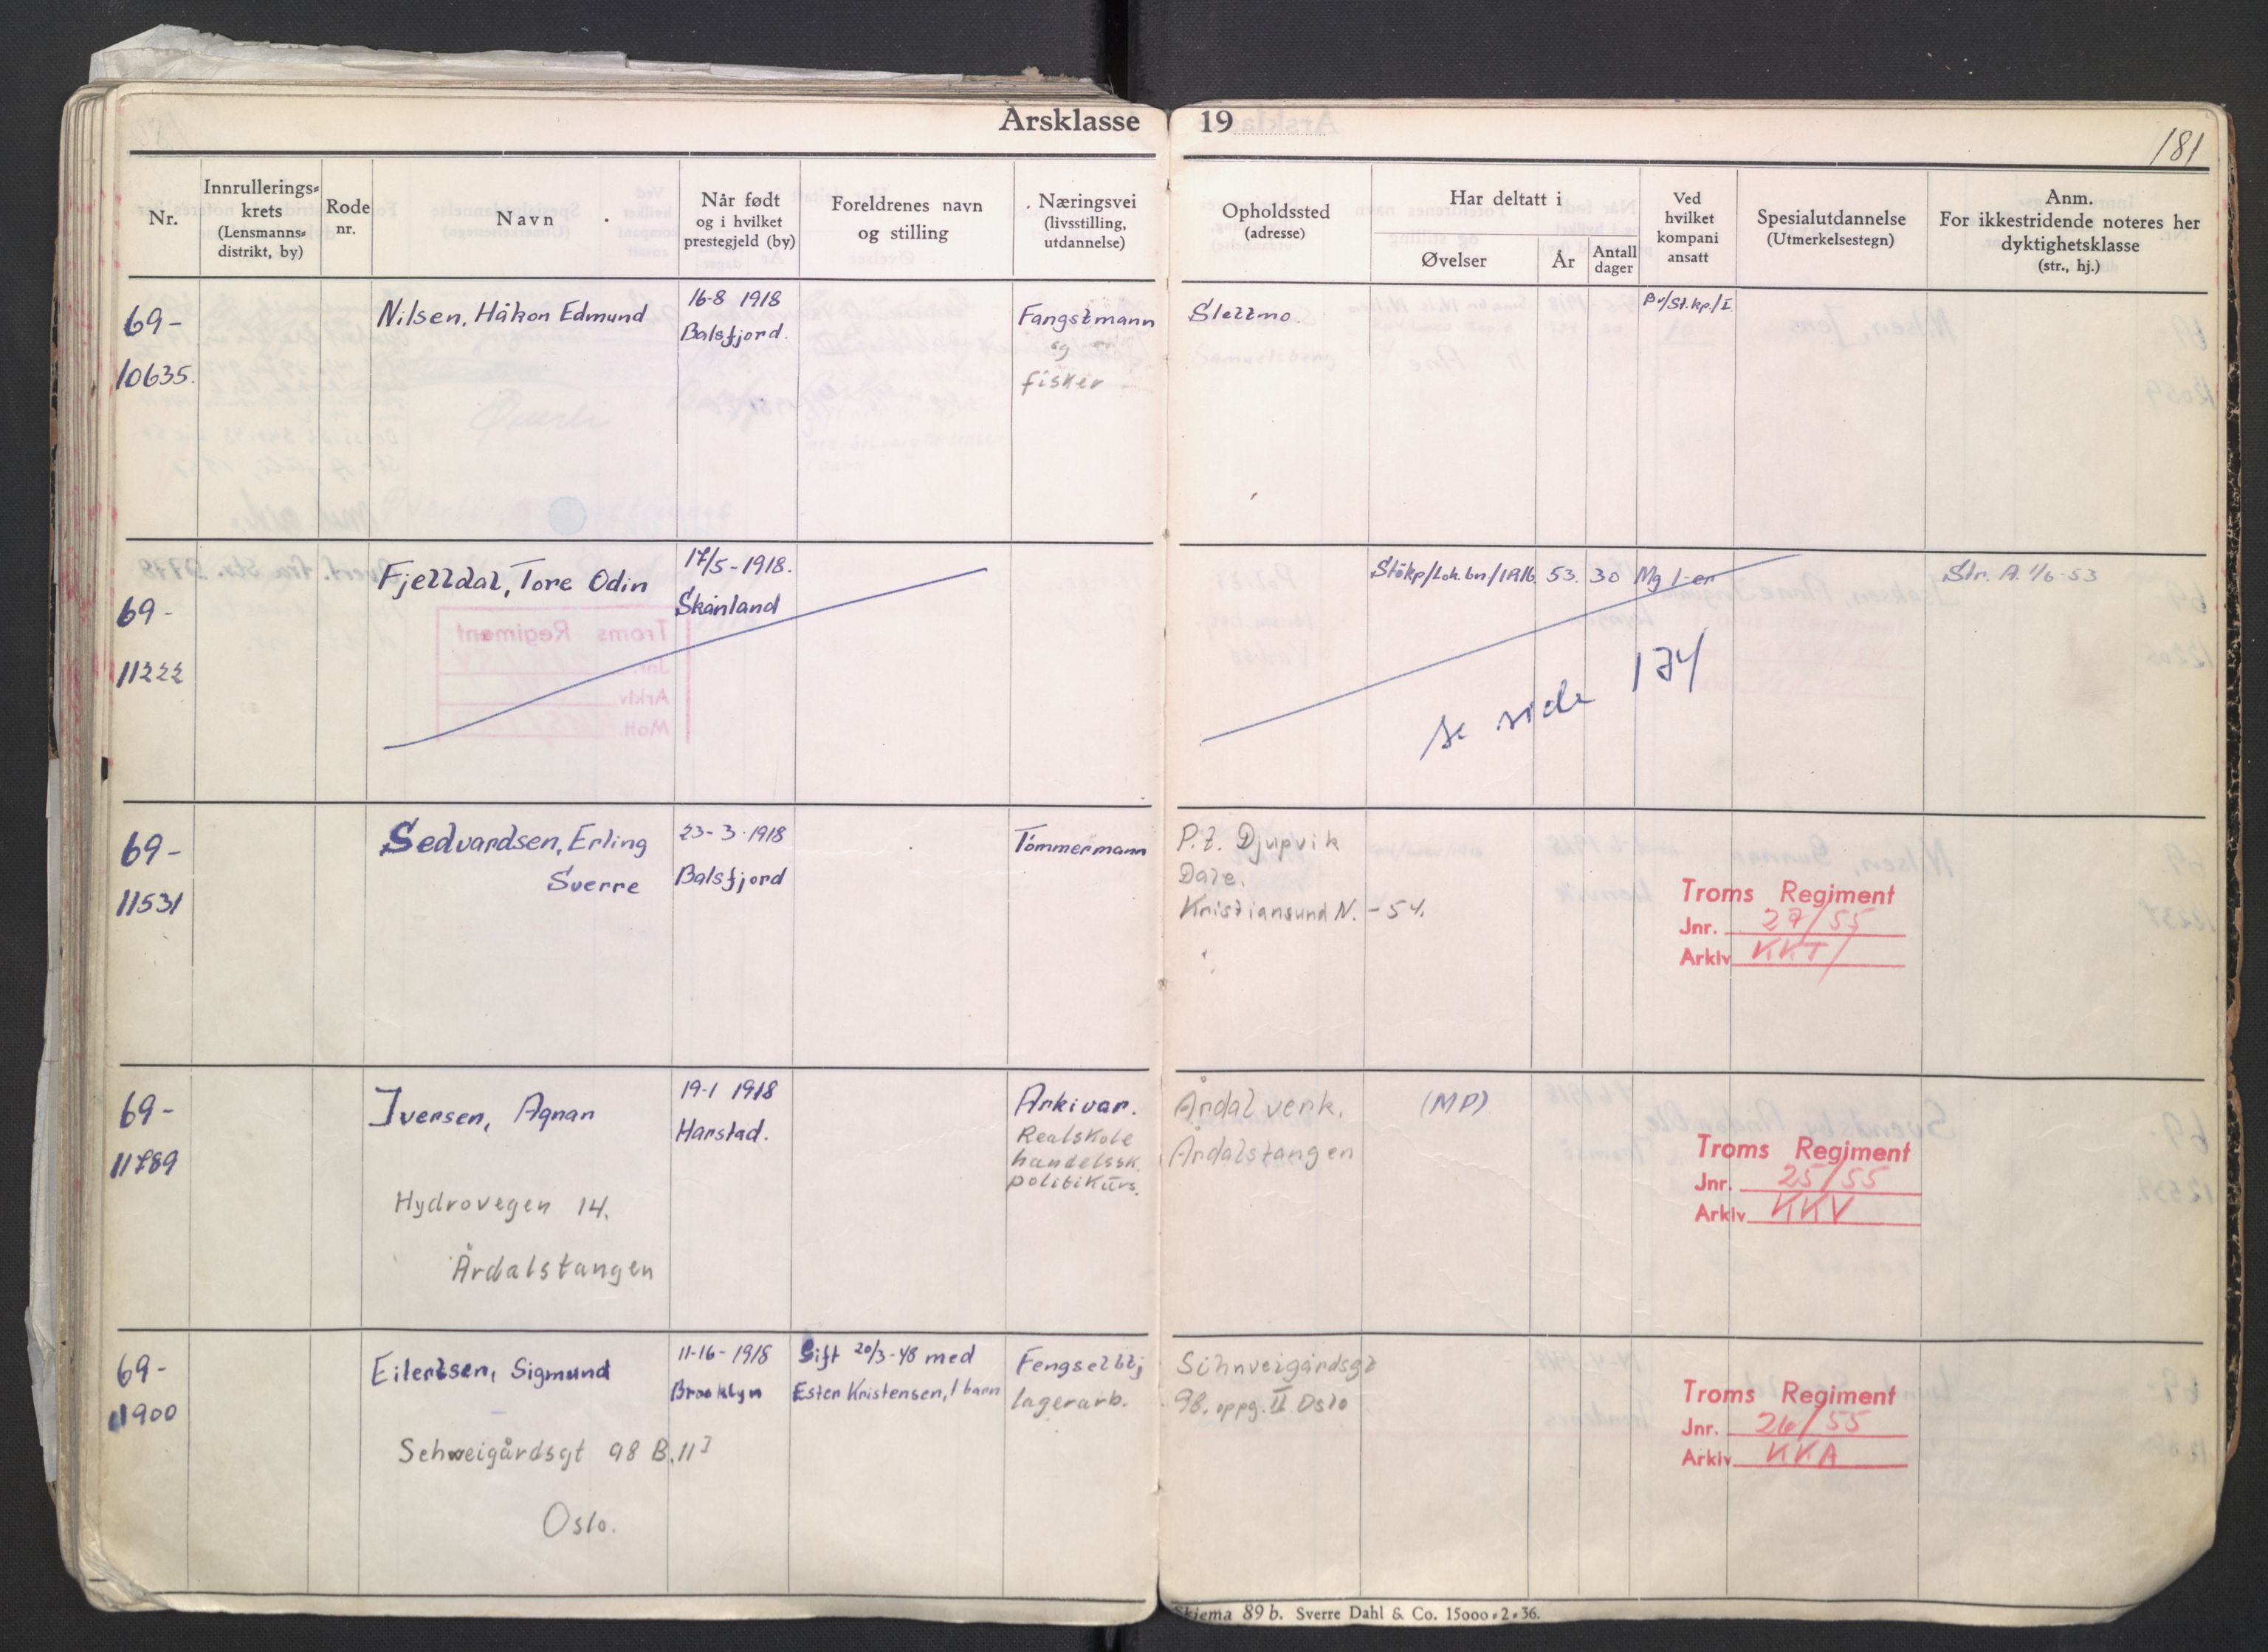 Årsklasse 19
181
Nr.
Innrullerings-
krets
(Lensmanns-
distrikt, by)
Rode
nr.
Navn
Når født
og i hvilket
prestegjeld (by)
Foreldrenes navn
og stilling
Næringsvei
(livsstilling,
utdannelse)
Opholdssted
(adresse)
Har deltatt i
Øvelser
År
Antall
dager
Ved
hvilket
kompani
ansatt
Spesialutdannelse
(Utmerkelsestegn)
Anm.
For ikkestridende noteres her
dyktighetsklasse
(str., hj.)
69-
10635.
Nilsen, Håkon Edmund
16-8 1918
Balsfjord.
Fangstmann
og
fisker
Slettmo.
Bv/St.kp./I
69-
11222
Fjelldal, Tore Odin
17/5-1918.
Skånland
Stökp/Lok.bn/IR16
53.
30
Mg 1-er
Str. A. 1/6-53
se side 174
69-
11531
Sedvardsen, Erling
Sverre
23-3-1918
Balsfjord
Tømmermann
P.t. Djupvik
Dale.
Kristiansund N. -54.
Troms Regiment
Jnr. 27/55
Arkiv KKT/
69-
11789
Iversen, Agnar
19-1 1918
Harstad.
Arkivar.
Realskole
handelssk.
politikurs.
Hydrovegen 14.
Årdalstangen
Årdal verk.
Årdalstangen
(MP)
Troms Regiment
Jnr. 25/55
Arkiv KKV
69-
11900
Eilertsen, Sigmund
11-16-1918
Brooklyn
Gift 20/3-48 med
Ester Kristensen, 1 barn
Fengselbtj
lagerarb.
Schweigårdsgt 98 B.
Oslo.
98. oppg. II Oslo
Troms Regiment
Jnr. 26/55
Arkiv KKA
Skjema 89 b. Sverre Dahl & Co. 15000-2-36.